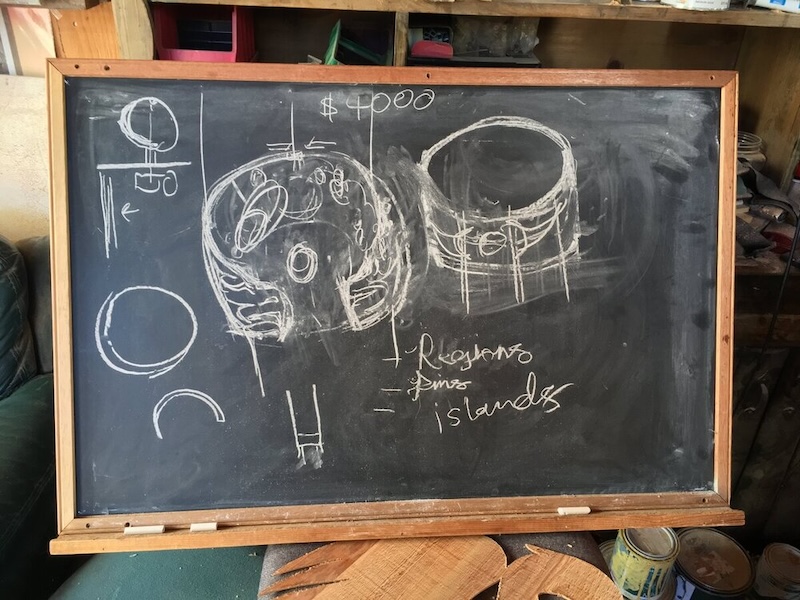 $4000
- Regions
- Pins
- islands